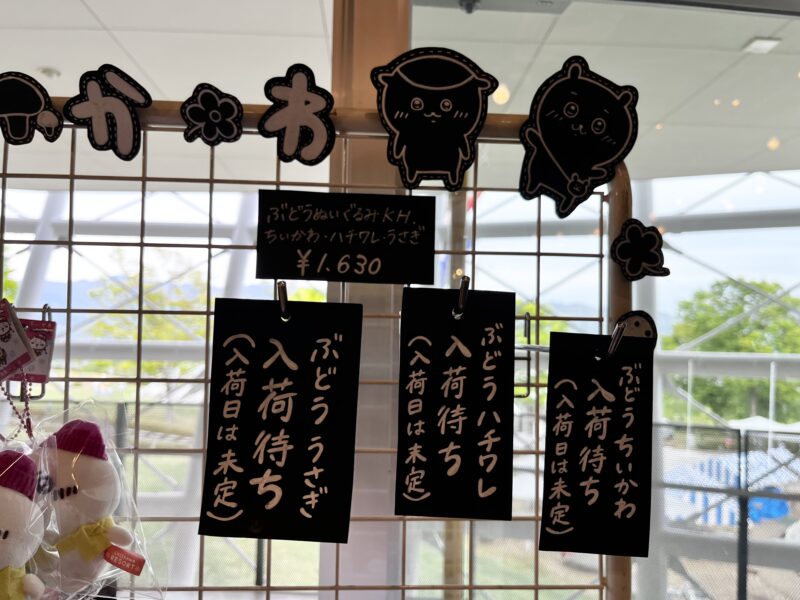 かわ
ぶどうぬいぐるみKH.
ちいかわ・ハチワレ・うさぎ
¥1.630
ぶどううさぎ
入荷待ち
（入荷日は未定）
ぶどうハチワレ
入荷待ち
（入荷日は未定）
ぶどうちいかわ
入荷待ち
（入荷日は未定）
RESORT